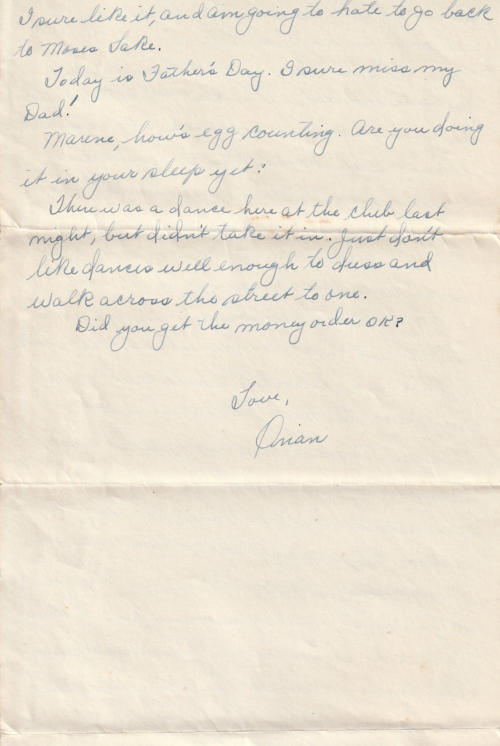 I sure like it, and am going to hate to go back
to Moses Lake.
Today is Father's Day. I sure miss my
Dad!
Marene, how's egg counting. Are you doing
it in your sleep yet?
There was a dance here at the club last
night, but didn't take it in. Just don't
like dances well enough to dress and
walk across the street to one.
Did you get the money order OK?
Love,
Orian